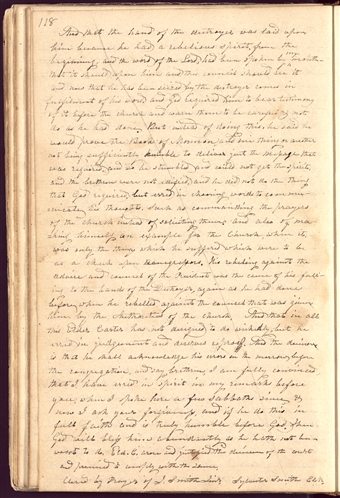 118
And that the hand of the destroyer was laid upon
him because he had a rebelious spirit, from the
beginning, and the word of the Lord, had been spoken by my mouth
that it should upon him and this council should see it
and now that he has been seized by the destroyer comes in
fulfilment of his word and God required him to bear testimony
of it before the church and warn them to be careful & not
do as he had done. But instead of doing this, he said he
would prove the Book of Mormon, & one thing or another
not being sufficiently humble to deliver just the message that
was required, and so he stumbled and could not get the spirit
and the brethren were not edified, and he did not do the thing
that God required but erred in chosing words to commu
nicate his thoughts, such as commanding the prayers
of the church instead of soliciting them, and also of ma
king himself an example for the church, when it
was only the things which he suffered which were to be
as a check upon transgressors. His rebeling against the
advice and council of the President was the cause of his fall
ing to the hands of the Destroyer, again as he had done
before, when he rebelled against the council that was given
him by the authorities of the church. And that in all
this Elder Carter has not designed to do wickedly, but he
erred in judgement and deserves reproof. And the decision
is that he shall acknowledge his errors on the morrow, before
the congregation, and say brethren, I am fully convinced
that I have erred in spirit in my remarks before
you, when I spoke here a few Sabbaths since, &
now I ask your forgiveness, and if he do this in
full faith and is truly humble before God, then
God will bless him abundantly as he hath not been
wont to do. Eld. C. arose and justified the decision of the court
and promised to comply with the same.
Closed by Prayer of J. Smith Sylvester Smith Clk.